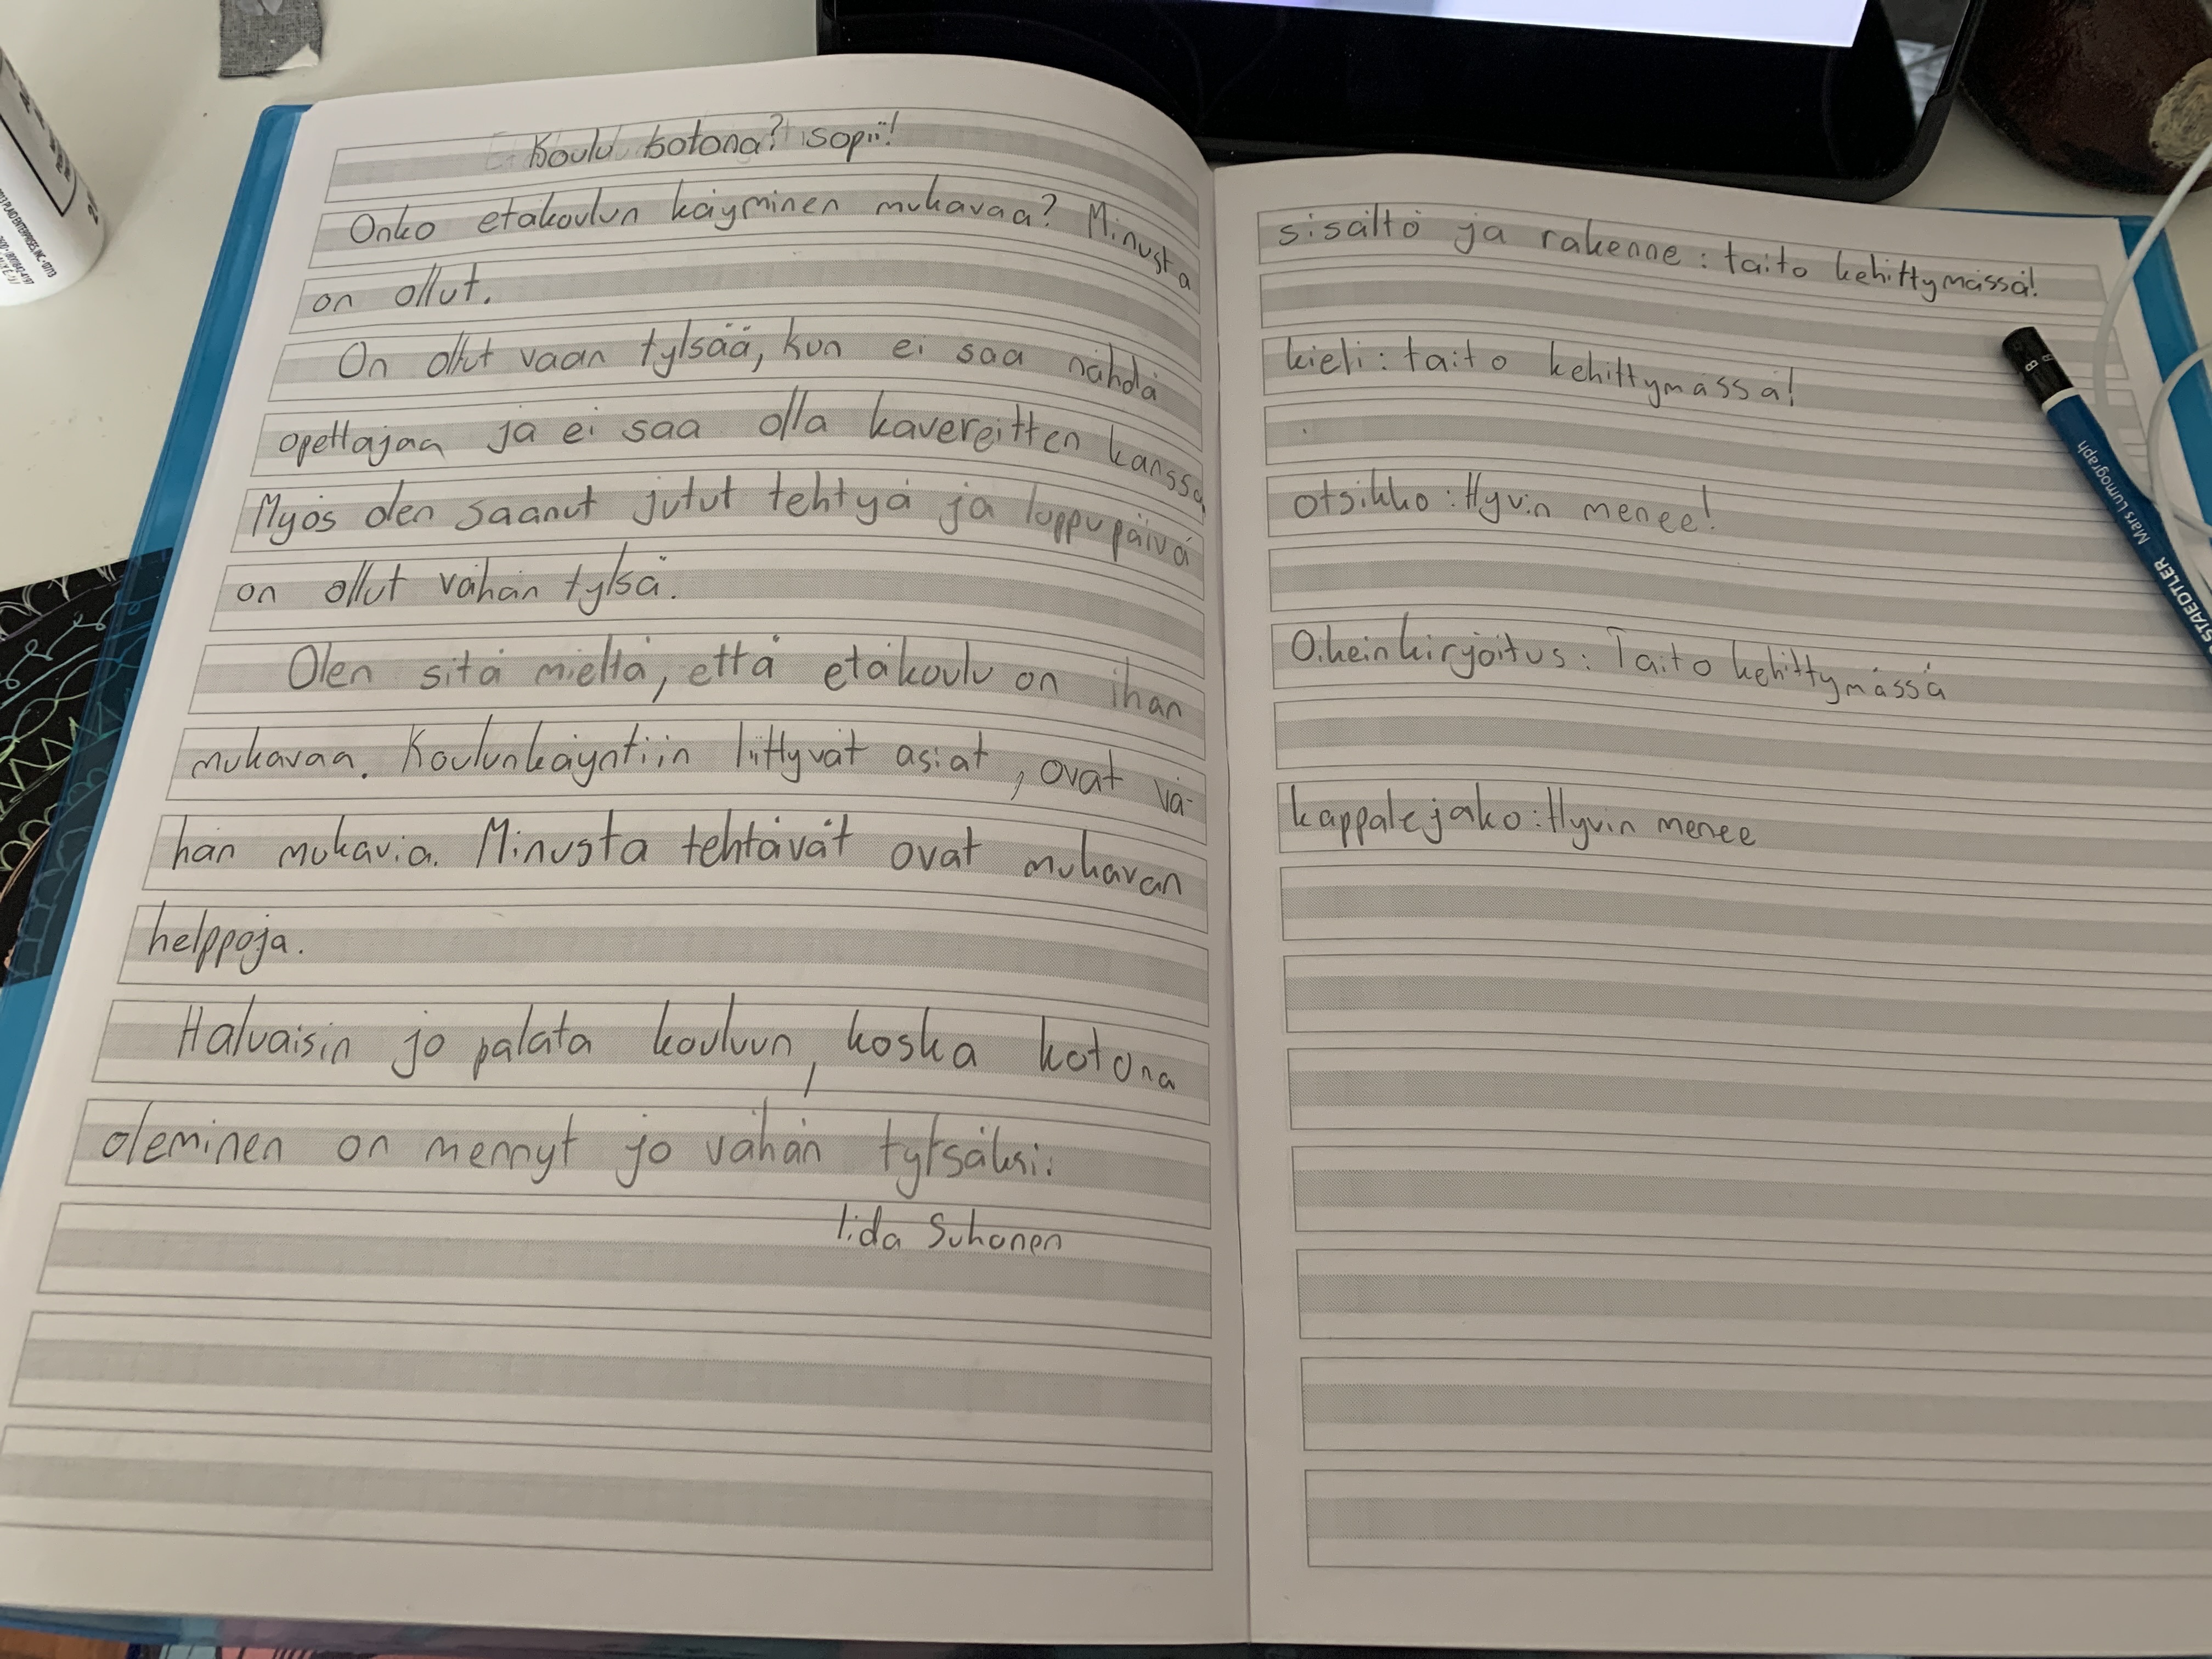 Koulu kotona? sopii!
Onko etäkoulun käyminen mukavaa? Minusta
on ollut.
On ollut vaan tylsää, kun ei saa nähdä
opettajaa ja ei saa olla kavereitten kanssa
Myös olen saanut jutut tehtyä ja loppupäivä
on ollut vähän tylsä.
Olen sitä mieltä, että etäkoulu on ihan
mukavaa. Koulunkäyntiin liittyvät asiat, ovat vä-
hän mukavia. Minusta tehtävät ovat mukavan
helppoja.
Haluaisin jo palata kouluun, koska kotona
oleminen on mennyt jo vähän tylsäksi.
Iida Suhonen
sisältö ja rakenne: taito kehittymässä!
kieli: taito kehittymässä!
otsikko: Hyvin menee!
Oikeinkirjoitus: Taito kehittymässä
kappalejako: Hyvin menee
STAEDTLER Mars Lumograph
8B